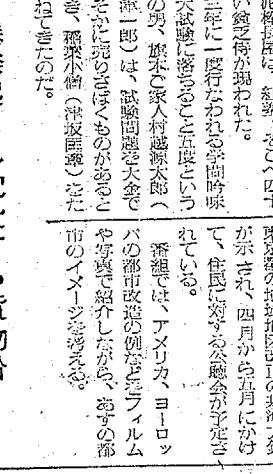 い貧乏侍が現われた。
三年に一度行なわれる学問吟味
大試験に落ちること五度という
の男、旗本ご家人村越源太郎（
津一郎）は、試験問題を大金で
そかに売りさばくものがあると
き、稲葉小僧（津坂匡章）をた
ねてきたのだ。
が示され、四月から五月にかけ
て、住民に対する公聴会が予定さ
れている。
番組では、アメリカ、ヨーロッ
パの都市改造の例などをフィルム
や写真で紹介しながら、あすの都
市のイメージを考える。